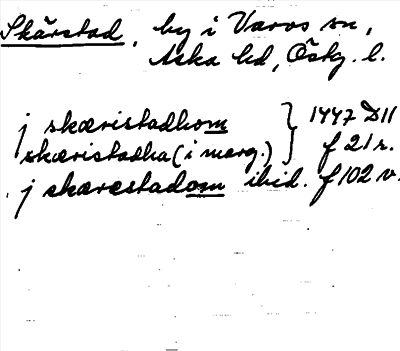 Skärstad, by i Varvs sn,
Aska hd, Östg. l.
j skæristadhom } 1447 D11
skæristadha (i marg.) } f 21 r.
j skærestadom ibid. f 102 v.